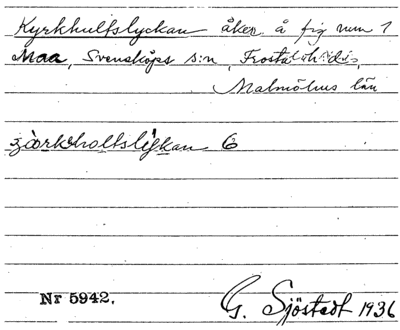 Kyrkhultslyckan åker å fig num 1
Maa, Svensköps s:n, Frosta h:d,
Malmöhus län
6
Nr 5942.
G. Sjöstedt 1936